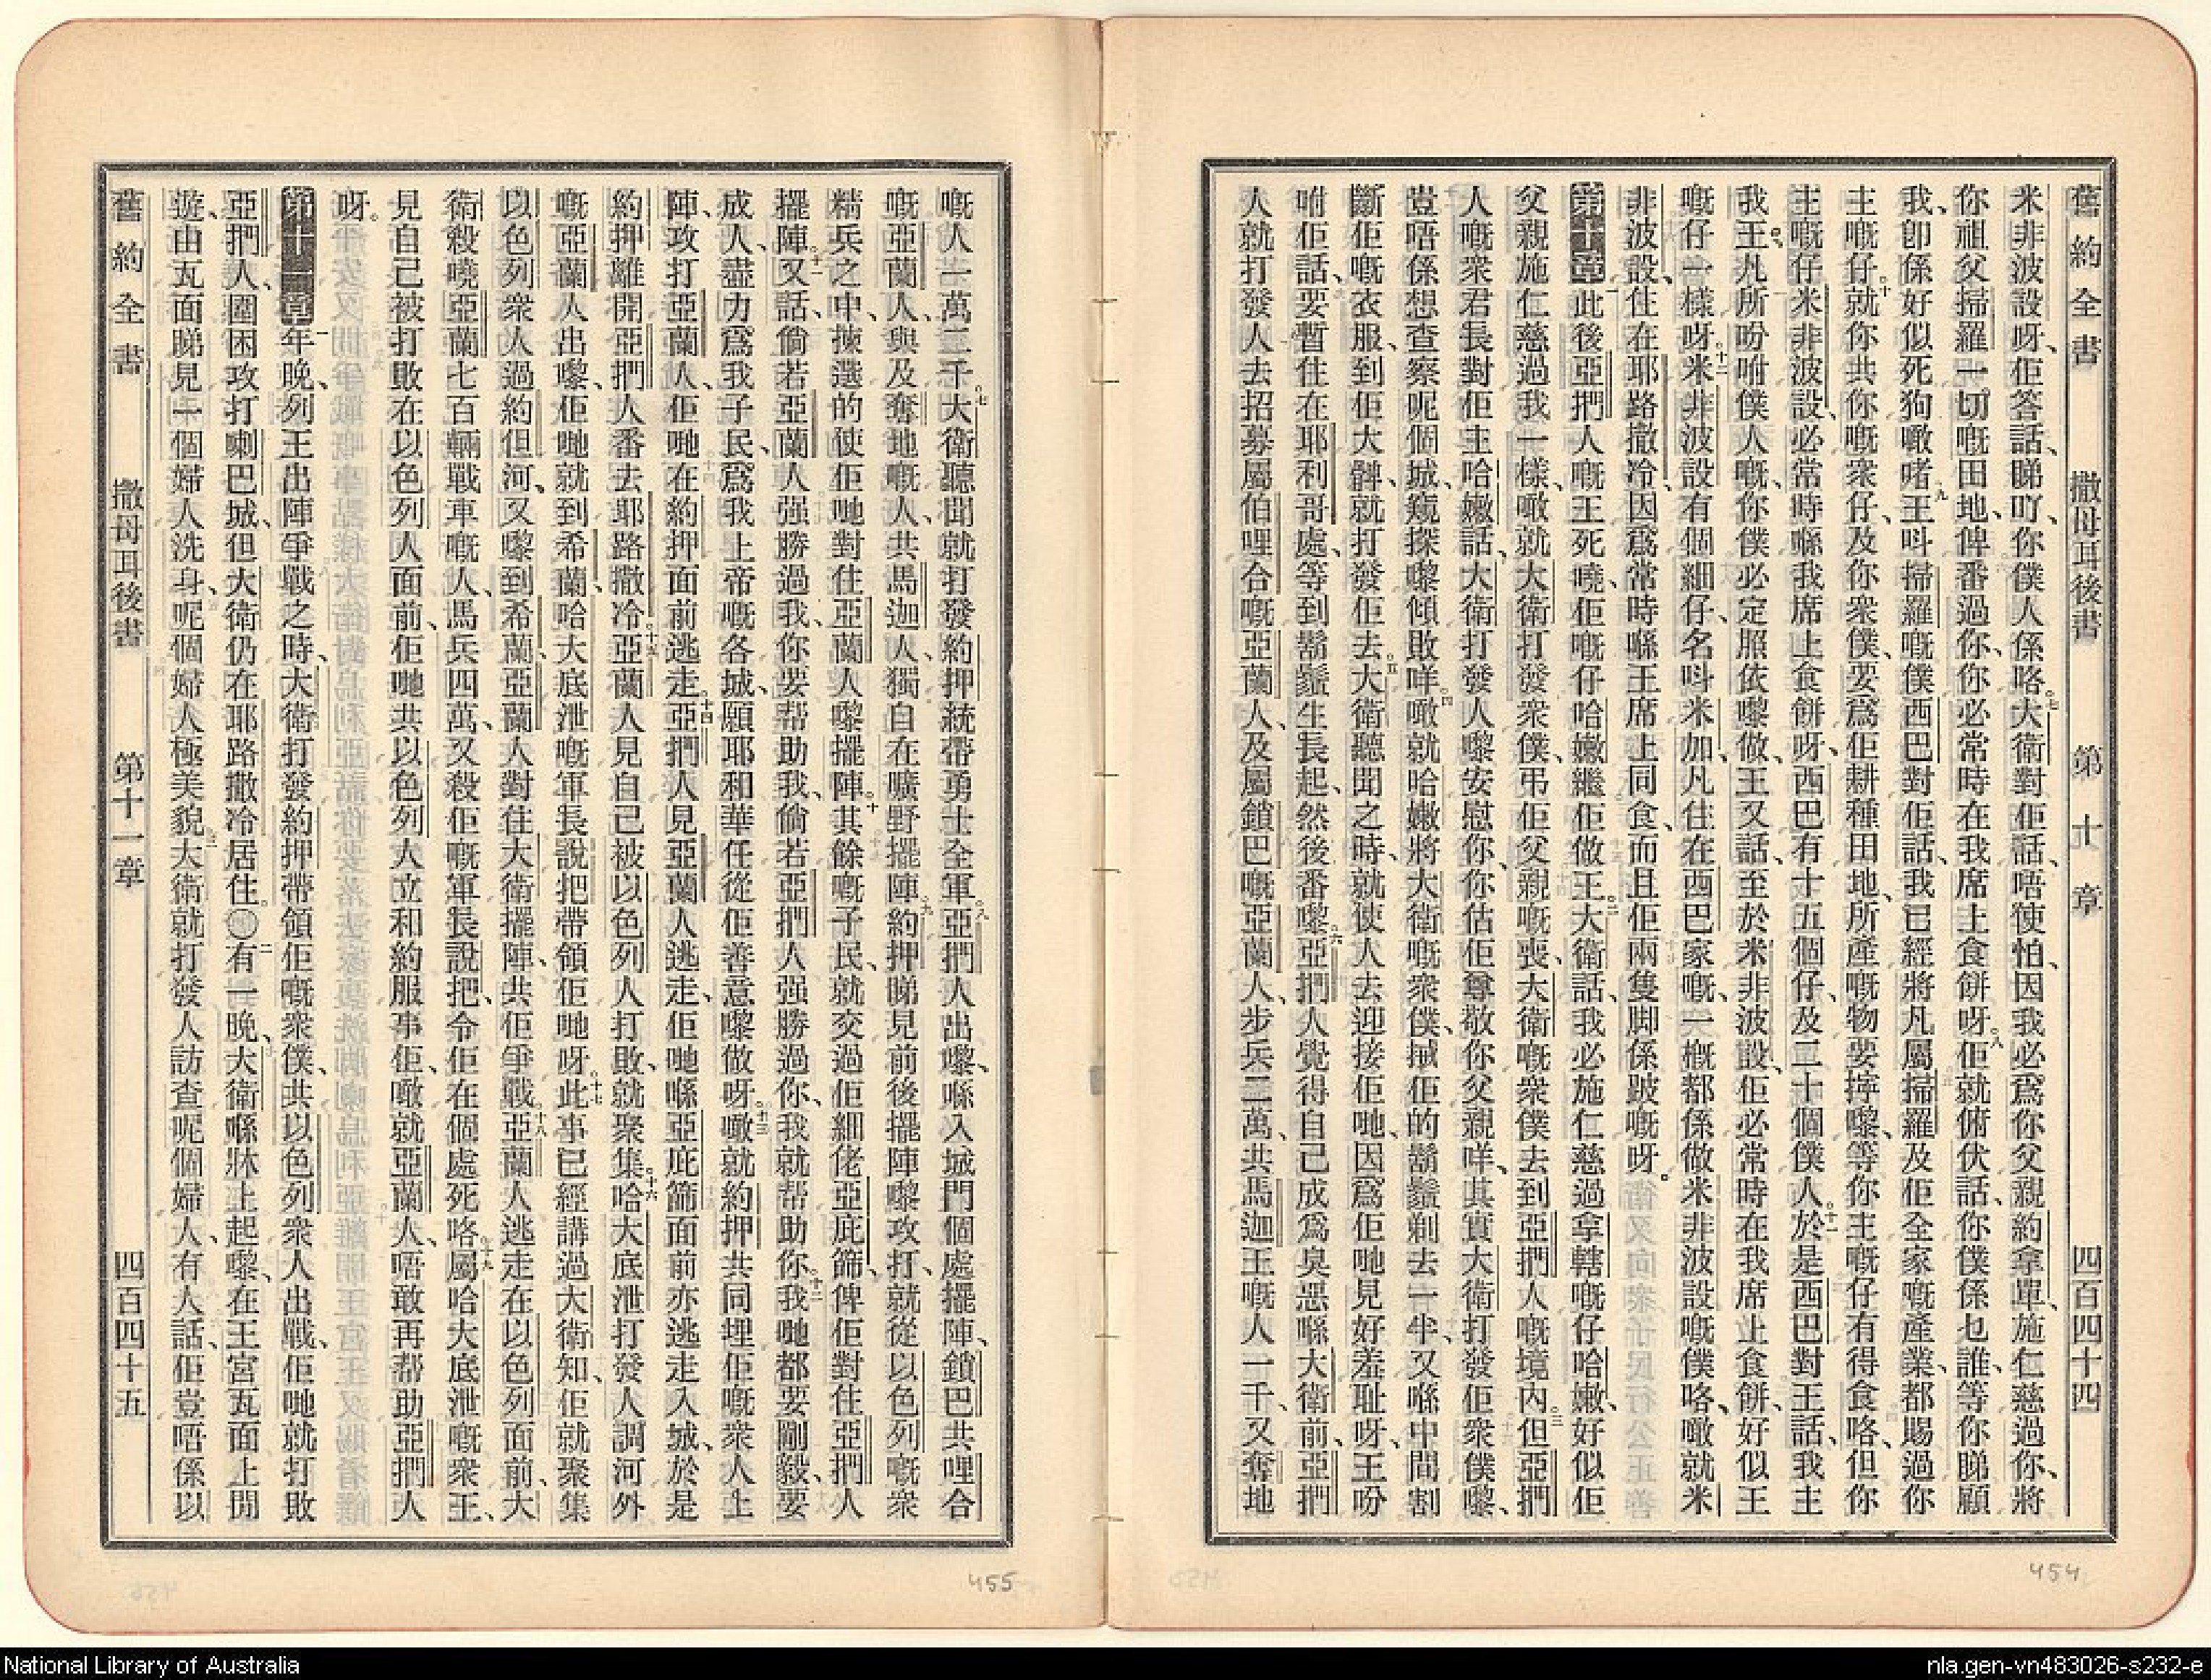 舊約全書 撒母耳後書 第十章 四百四十四
米非波設呀、佢答話、睇吖、你僕人係咯。七大衛對佢話、唔使怕、因我必爲你父親約拿單、施仁慈過你、將
你祖父掃羅一切嘅田地、俾番過你、你必常時在我席上食餅呀。八佢就俯伏話、你僕係乜誰、等你睇顧
我、卽係好似死狗噉啫。九王呌掃羅嘅僕西巴對佢話、我已經將凡屬掃羅及佢全家嘅產業、都賜過你
主嘅仔。十就你共你嘅衆仔、及你衆僕、要爲佢耕種田地、所產嘅物要擰嚟、等你主嘅仔有得食咯、但你
主嘅仔米非波設、必常時喺我席上食餅呀、西巴有十五個仔、及二十個僕人。十一於是西巴對王話、我主
我王、凡所吩咐僕人嘅、你僕必定照依嚟做、王又話、至於米非波設、佢必常時在我席上食餅、好似王
嘅仔一樣呀。十二米非波設有個細仔、名呌米加、凡住在西巴家嘅、一概都係做米非波設嘅僕咯、噉就米
非波設、住在耶路撒冷、因爲常時喺王席上同食、而且佢兩隻脚係跛嘅呀。
第十章一此後亞捫人嘅王死嘵、佢嘅仔哈嫩繼佢做王。二大衛話、我必施仁慈過拿轄嘅仔哈嫩、好似佢
父親施仁慈過我一樣、噉就大衛打發衆僕、弔佢父親嘅喪、大衛嘅衆僕去到亞捫人嘅境內。三但亞捫
人嘅衆君長對佢主哈嫩話、大衛打發人嚟安慰你、你估佢尊敬你父親咩、其實大衛打發佢衆僕嚟、
豈唔係想查察呢個城、窺探嚟傾敗咩。四噉就哈嫩將大衛嘅衆僕、搣佢的鬍鬚剃去一半、又喺中間割
斷佢嘅衣服、到佢大髀、就打發佢去。五大衛聽聞之時、就使人去迎接佢哋、因爲佢哋見好羞耻呀、王吩
咐佢話、要暫住在耶利哥處、等到鬍鬚生長起、然後番嚟。六亞捫人覺得自己成爲臭惡喺大衛前、亞捫
人就打發人去招募屬伯哩合嘅亞蘭人、及屬鎖巴嘅亞蘭人、步兵二萬、共馬迦王嘅人一千、又奪地
454
嘅人一萬二千。七大衛聽聞就打發約押統帶勇士全軍。八亞捫人出嚟、喺入城門個處擺陣、鎖巴共哩合
嘅亞蘭人、與及奪地嘅人、共馬迦人、獨自在曠野擺陣。九約押睇見前後擺陣嚟攻打、就從以色列嘅衆
精兵之中、揀選的使佢哋對住亞蘭人嚟擺陣。十其餘嘅子民、就交過佢細佬亞庇篩、俾佢對住亞捫人
擺陣。十一又話、倘若亞蘭人强勝過我、你要帮助我、倘若亞捫人强勝過你、我就帮助你。十二我哋都要剛毅、要
成人、盡力爲我子民、爲我上帝嘅各城、願耶和華任從佢善意嚟做呀。十三噉就約押共同埋佢嘅衆人上
陣、攻打亞蘭人、佢哋在約押面前逃走。十四亞捫人見亞蘭人逃走、佢哋喺亞庇篩面前亦逃走入城、於是
約押離開亞捫人番去耶路撒冷。十五亞蘭人見自己被以色列人打敗、就聚集。十六哈大底泄打發人調河外
嘅亞蘭人出嚟、佢哋就到希蘭、哈大底泄嘅軍長說把帶領佢哋呀。十七此事已經講過大衛知、佢就聚集
以色列衆人過約但河、又嚟到希蘭、亞蘭人對住大衛擺陣、共佢爭戰。十八亞蘭人逃走在以色列面前、大
衛殺嘵亞蘭七百輛戰車嘅人、馬兵四萬、又殺佢嘅軍長說把、令佢在個處死咯。十九屬哈大底泄嘅衆王、
見自己被打敗在以色列人面前、佢哋共以色列人立和約服事佢、噉就亞蘭人、唔敢再帮助亞捫人
呀。
第十一章一年晚、列王出陣爭戰之時、大衛打發約押帶領佢嘅衆僕、共以色列衆人出戰、佢哋就打敗
亞捫人、圍困攻打喇巴城、但大衛仍在耶路撒冷居住。〇二有一晚、大衛喺牀上起嚟、在王宮瓦面上閒
遊、由瓦面睇見一個婦人洗身、呢個婦人極美貌。三大衛就打發人訪查呢個婦人、有人話、佢豈唔係以
舊約全書 撒母耳後書 第十一章 四百四十五
455
National Library of Australia
nla.gen-vn483026-s232-e